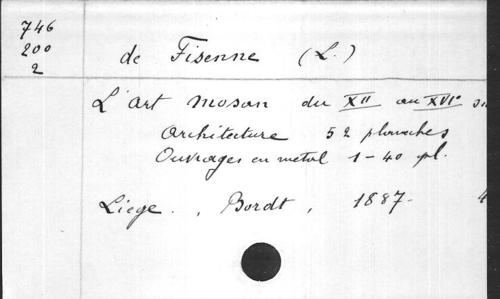 746
200
2
de Fisenne (L.)
L'art mosan du XII au XVIe
Architecture 52 planches
Ouvrages en metal 1-40 pl.
Liège. , Bordt, 1887. 4